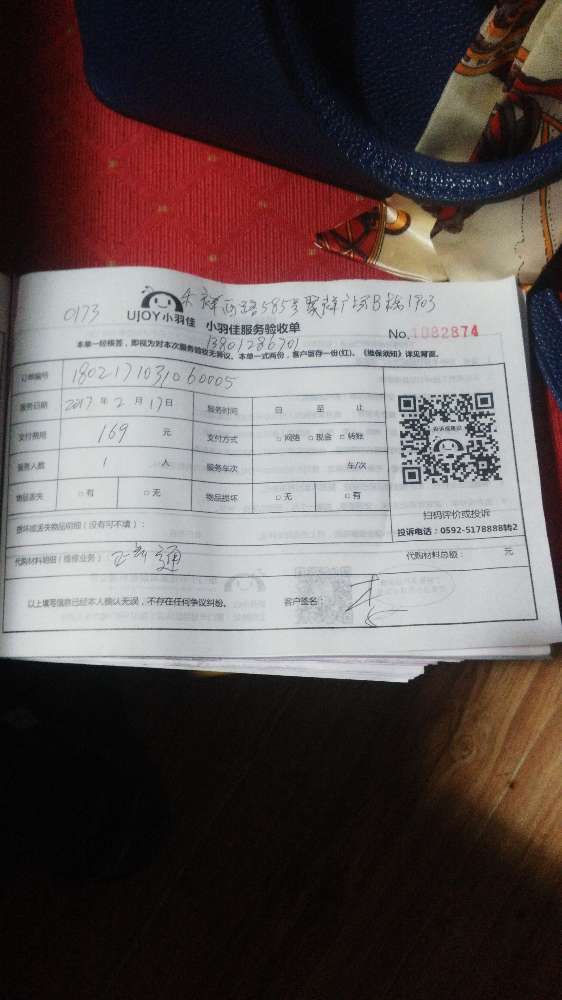 0173
585号
B栋1903
UJOY小羽佳 小羽佳服务验收单
No.1082874
13801286701
本单一经核答，即视为对本次服务验收无异议。本单一式两份，客户留存一份(红)。《维保须知》详见背面。
订单编号 1802171031060005
服务日期 2017 年 2 月 17 日 服务时间 自 至 止
支付费用 169 元 支付方式 □ 网络 □ 现金 □ 转账
服务人数 1 人 服务车次 车/次
物品丢失 □ 有 □ 无 物品损坏 □ 无 □ 有
扫码评价或投诉
投诉电话：0592-5178888转2
损坏或丢失物品明细（没有可不填）：
代购材料明细（维修业务）： 通 代购材料总额： 元
以上填写信息已经本人确认无误，不存在任何争议纠纷。 客户签名：